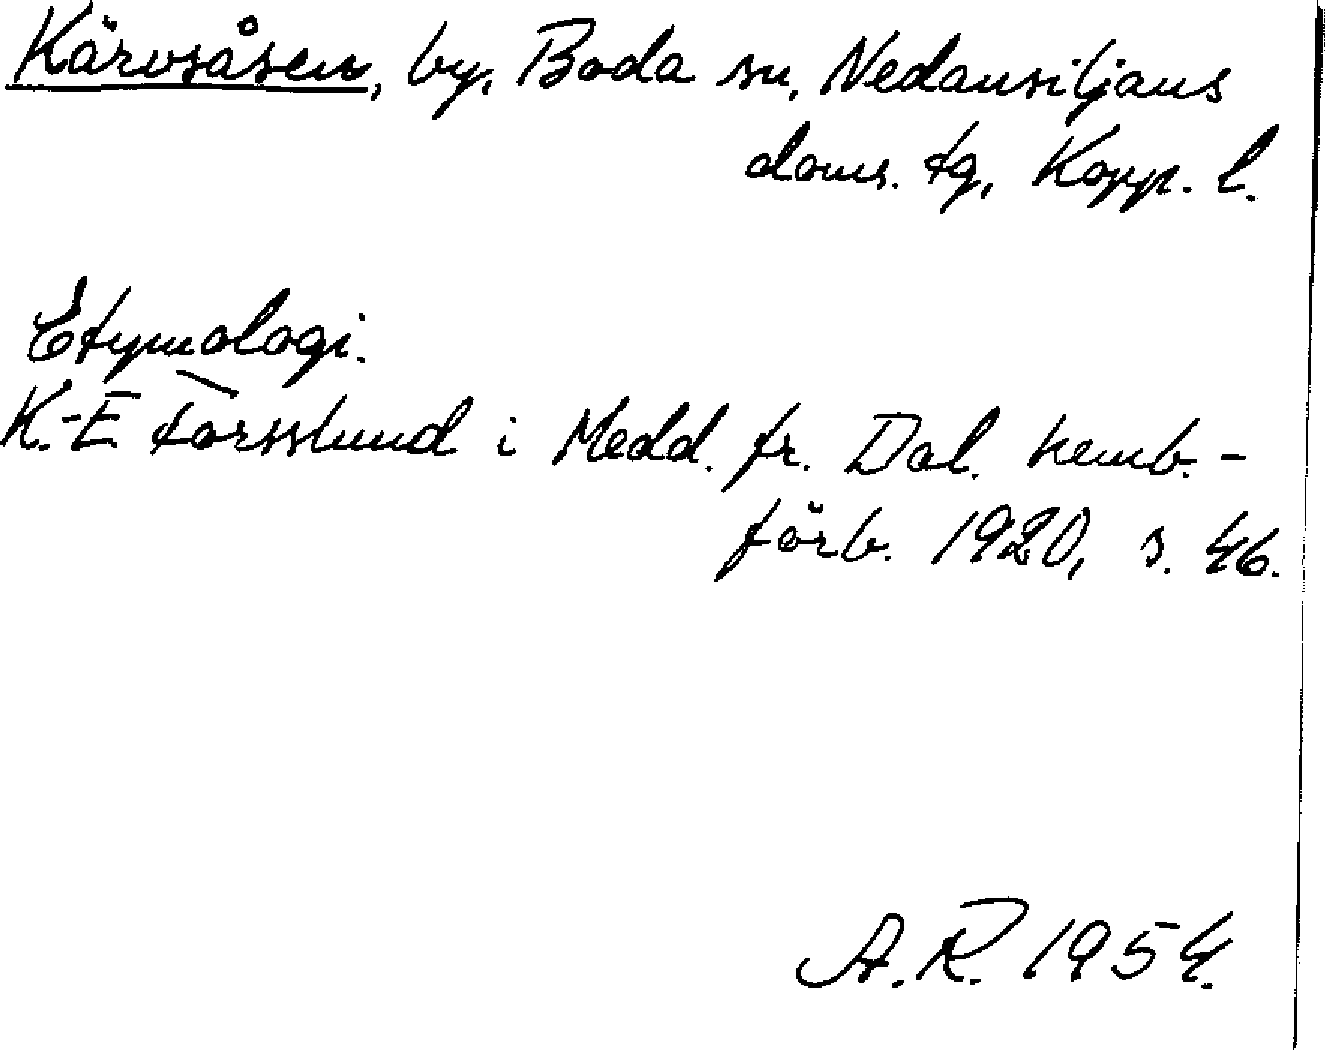 Kärvsåsen, by, Boda sn, Nedansiljans
doms. tg, Kopp. l.
Etymologi.
K.-E Forsslund i Medd. fr. Dal. hemb.-
förb. 1920, s. 46.
A.R. 1954.